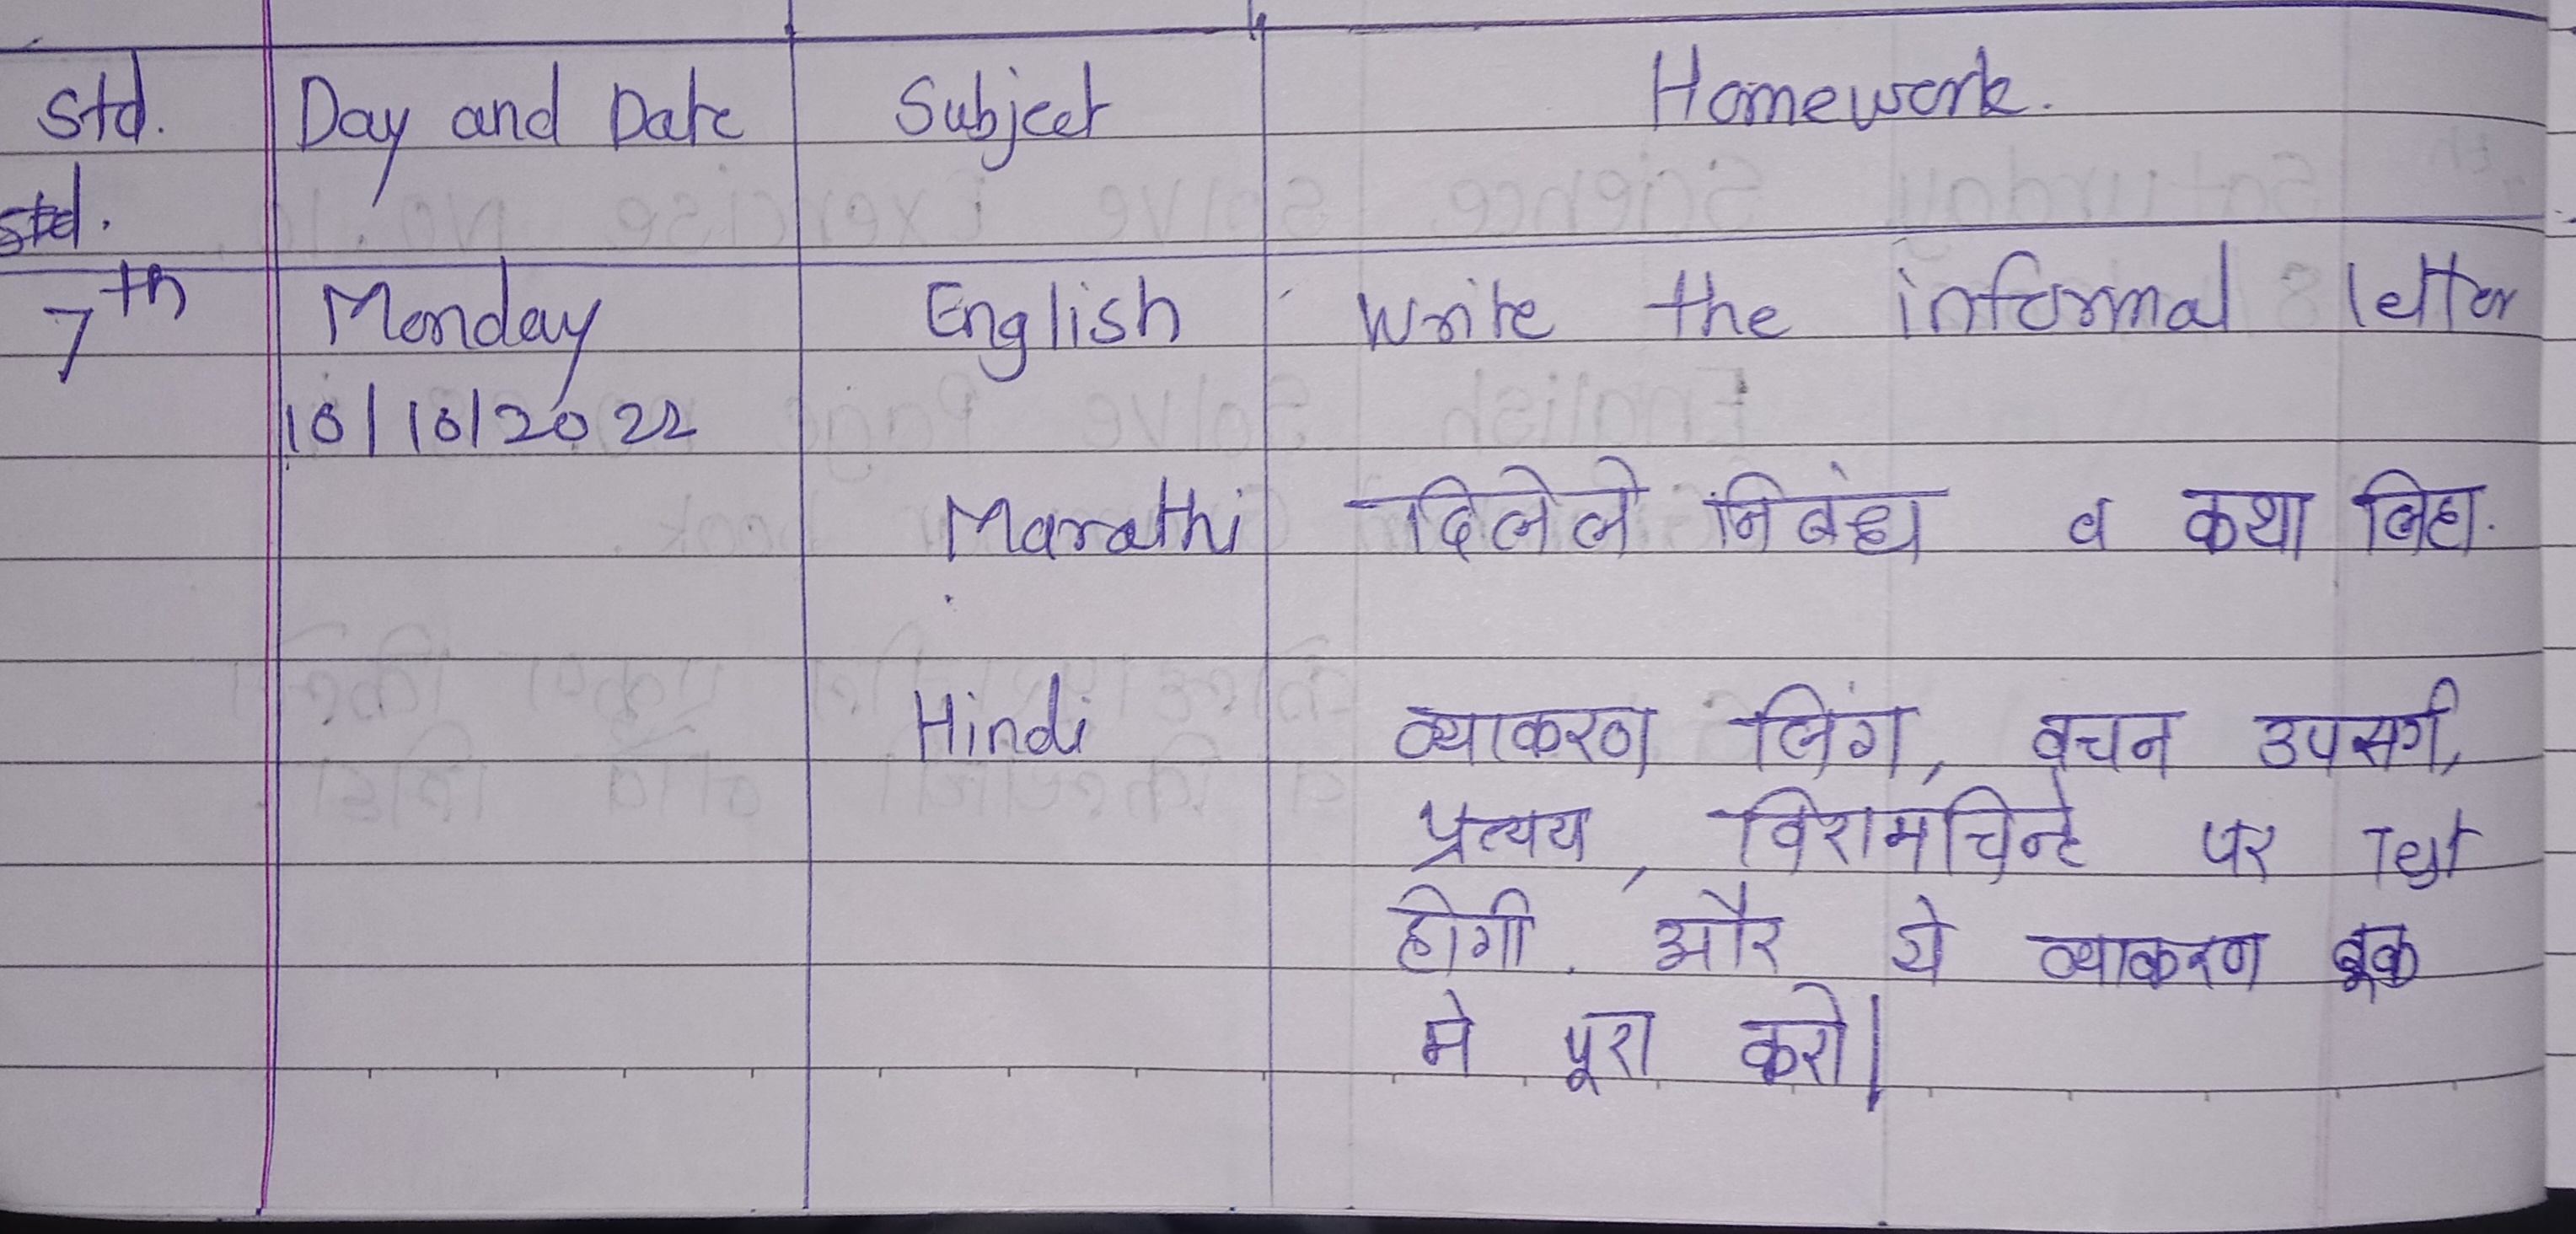 Std. Day and Date Subject Homework.
std.
7th Monday English Write the informal letter
10/10/2022
Marathi दिलेले निबंध व कथा लिहा.
Hindi व्याकरण लिंग, वचन उपसर्ग,
प्रत्यय, विरामचिन्हे पर Test
होगी. और ये व्याकरण बूक
मे पूरा करो|